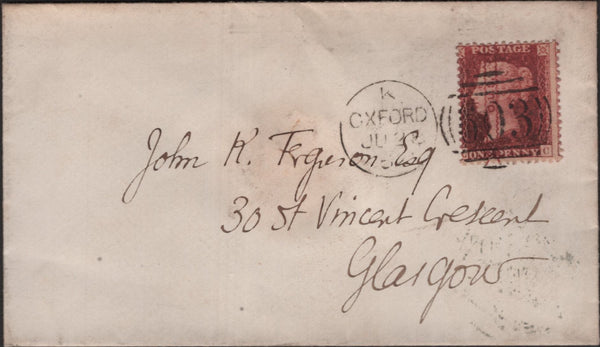 POSTAGE
K
OXFORD
603
ONE PENNY
C
John K. Ferguson Esq
30 St Vincent Crescent
Glasgow